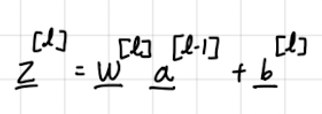 z^[l] = w^[l] a^[l-1] + b^[l]